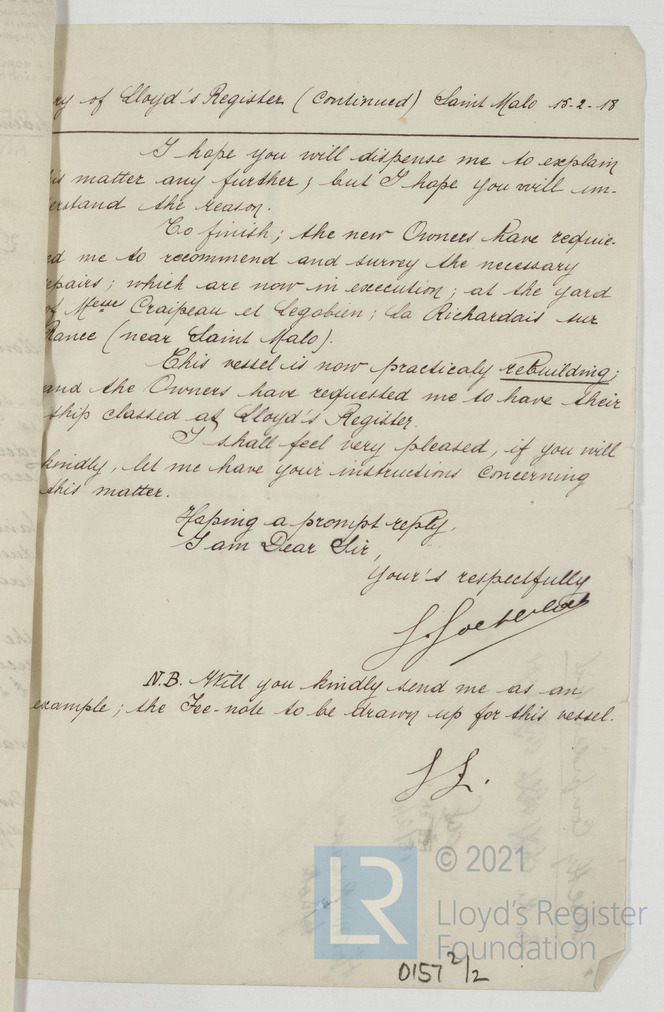 ry of Lloyd's Register (Continued) Saint Malo 15-2-18
I hope you will dispense me to explain
is matter any further; but I hope you will un-
erstand the reason.
To finish; the new Owners have requir-
ed me to recommend and survey the necessary
epairs; which are now in execution; at the yard
of Messrs Craipeau et Legobien; La Richardais sur
Rance (near Saint Malo).
This vessel is now practicaly reBuilding;
and the Owners have requested me to have their
ship classed at Lloyd's Register.
I shall feel very pleased, if you will
kindly, let me have your instructions concerning
this matter.
Hoping a prompt reply.
I am Dear Sir,
Your's respectfully
N.B. Will you kindly send me as an
example; the Fee-note to be drawn up for this vessel.
LR
© 2021
Lloyd's Register
Foundation
0157 2/2